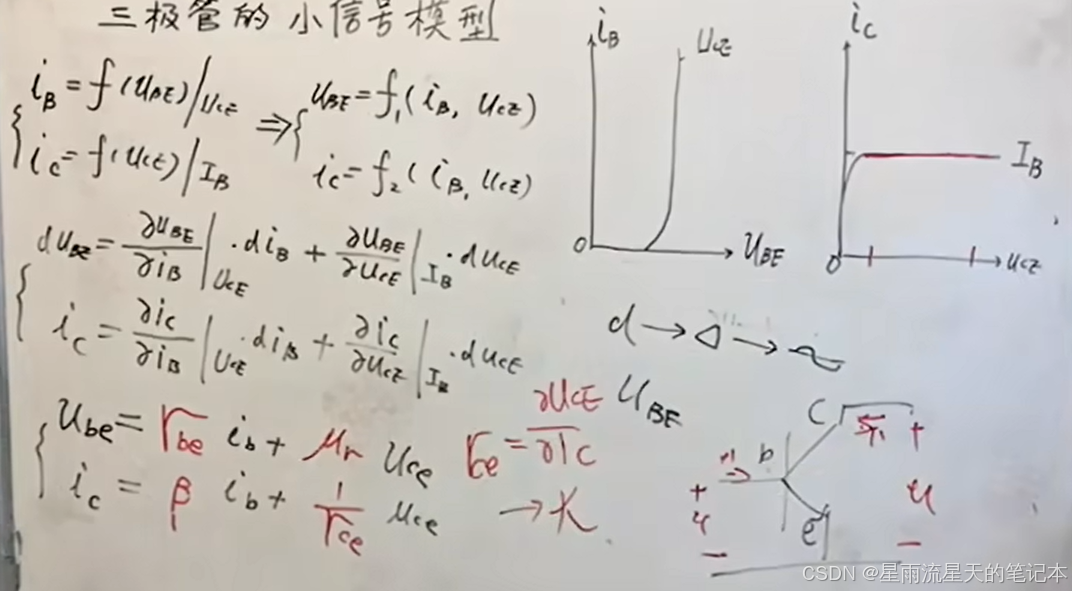 三极管的小信号模型
i_B = f(u_BE)|u_CE ⇒ u_BE = f₁(i_B, u_CE)
i_C = f(u_CE)|I_B i_C = f₂(i_B, u_CE)
du_BE = ∂u_BE/∂i_B|u_CE · di_B + ∂u_BE/∂u_CE|I_B · du_CE
i_C = ∂i_C/∂i_B|u_CE · di_B + ∂i_C/∂u_CE|I_B · du_CE
u_be = r_be i_b + μ_r u_ce
i_c = β i_b + 1/r_ce u_ce
r_ce = ∂u_CE/∂i_C u_BE
→ 大
i_B
u_CE
0
u_BE
i_C
I_B
0
u_CE
d → △ → ~
c
b
e
+
u
−
+
u
−
CSDN @星雨流星天的笔记本